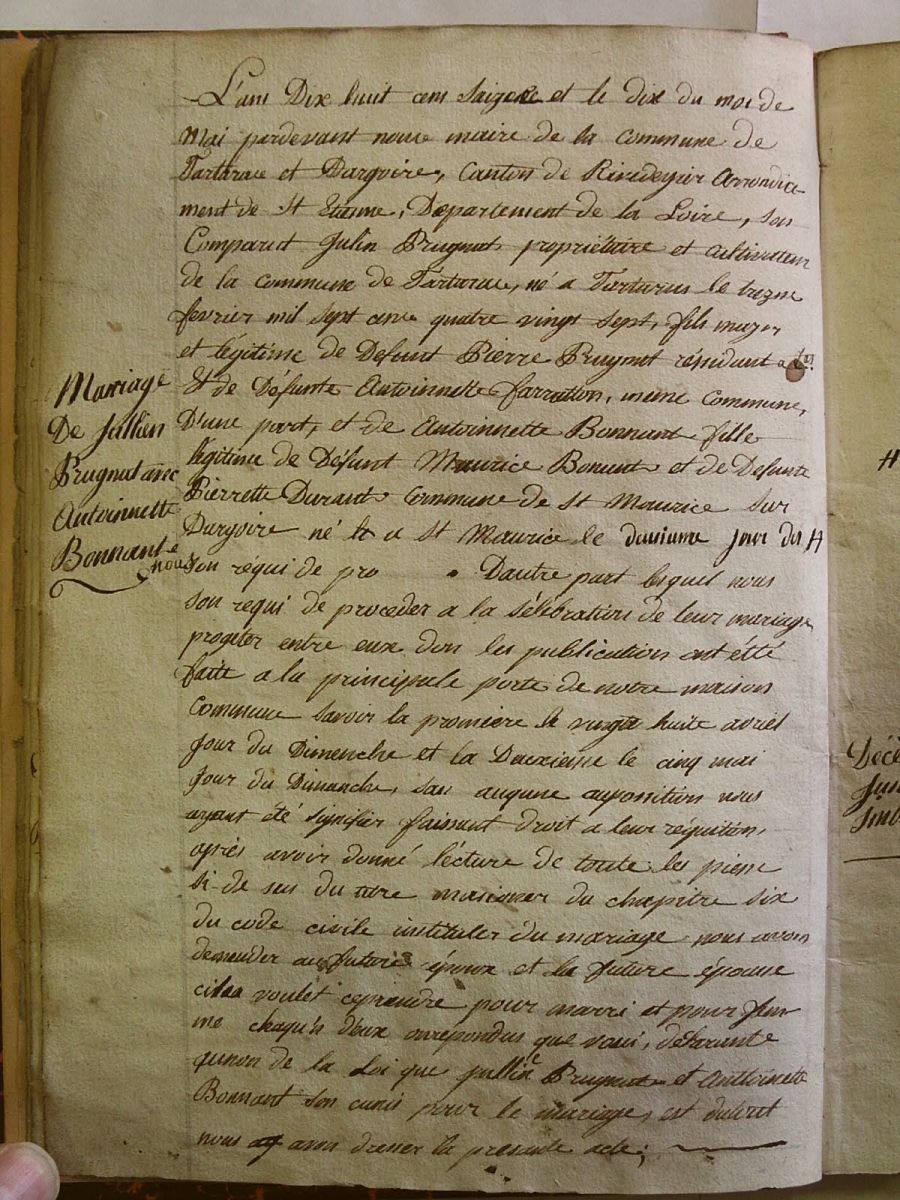 L'ans Dix huit cens Saizexe et le dix du moi de
Mai pardevant nous maire de la commune de
Tartarae et Dargoire, Canton de Rivedegier Arrondice-
ment de St Etienne, Département de la Loire, son
Comparut Julin Prugnat propriétaire et cultivateur
de la commune de Tartarae, né a Tartaras le treze
fevrier mil sept cens quatre vingt sept, fils majer
et légitime de Defunt Pierre Prugnat résidant
Et de Défunte Antoinnette farratton, meme Commune,
D'une part, et de Antoinnette Bonnant fille
légitime de Défunt Maurice Bonant et de Defunte
Pierrette Durant Commune de St Maurice Sur
Dargoire né a St Maurice le dauxiame jour des #
Mariage
De Jullien
Prugnat avec
Antoinnette
Bonnante
nous
son réqui de pro Dautre part lesquel nous
son requi de proceder a la sélébration de leur mariage
progeter entre eux don les publication ont étté
faite a la principale porte de notre maison
Commune savoir la promiere le vingt huite avriel
Jour du Dimenche et la Dauxieme le cinq mai
Jour du Dimanche, san augune aupossition nous
ayant été signifier faissant droit a leur réquiton,
aprés avoir donné lécture de toute les piese
si-de sus du titre du chapitre six
du code civile instituler du mariage nous avons
demender au future époux et la future épouse
voulet ceprendre pour marri et pour fem
me chaqu'n d'eux onrepondus que voui, déclarant
qunon de la Loi que jullin Prugnat et Anttoinette
Bonnant son cunis pour le mariage, est dutout
nous avon dresser la presente acte;
#
Décè